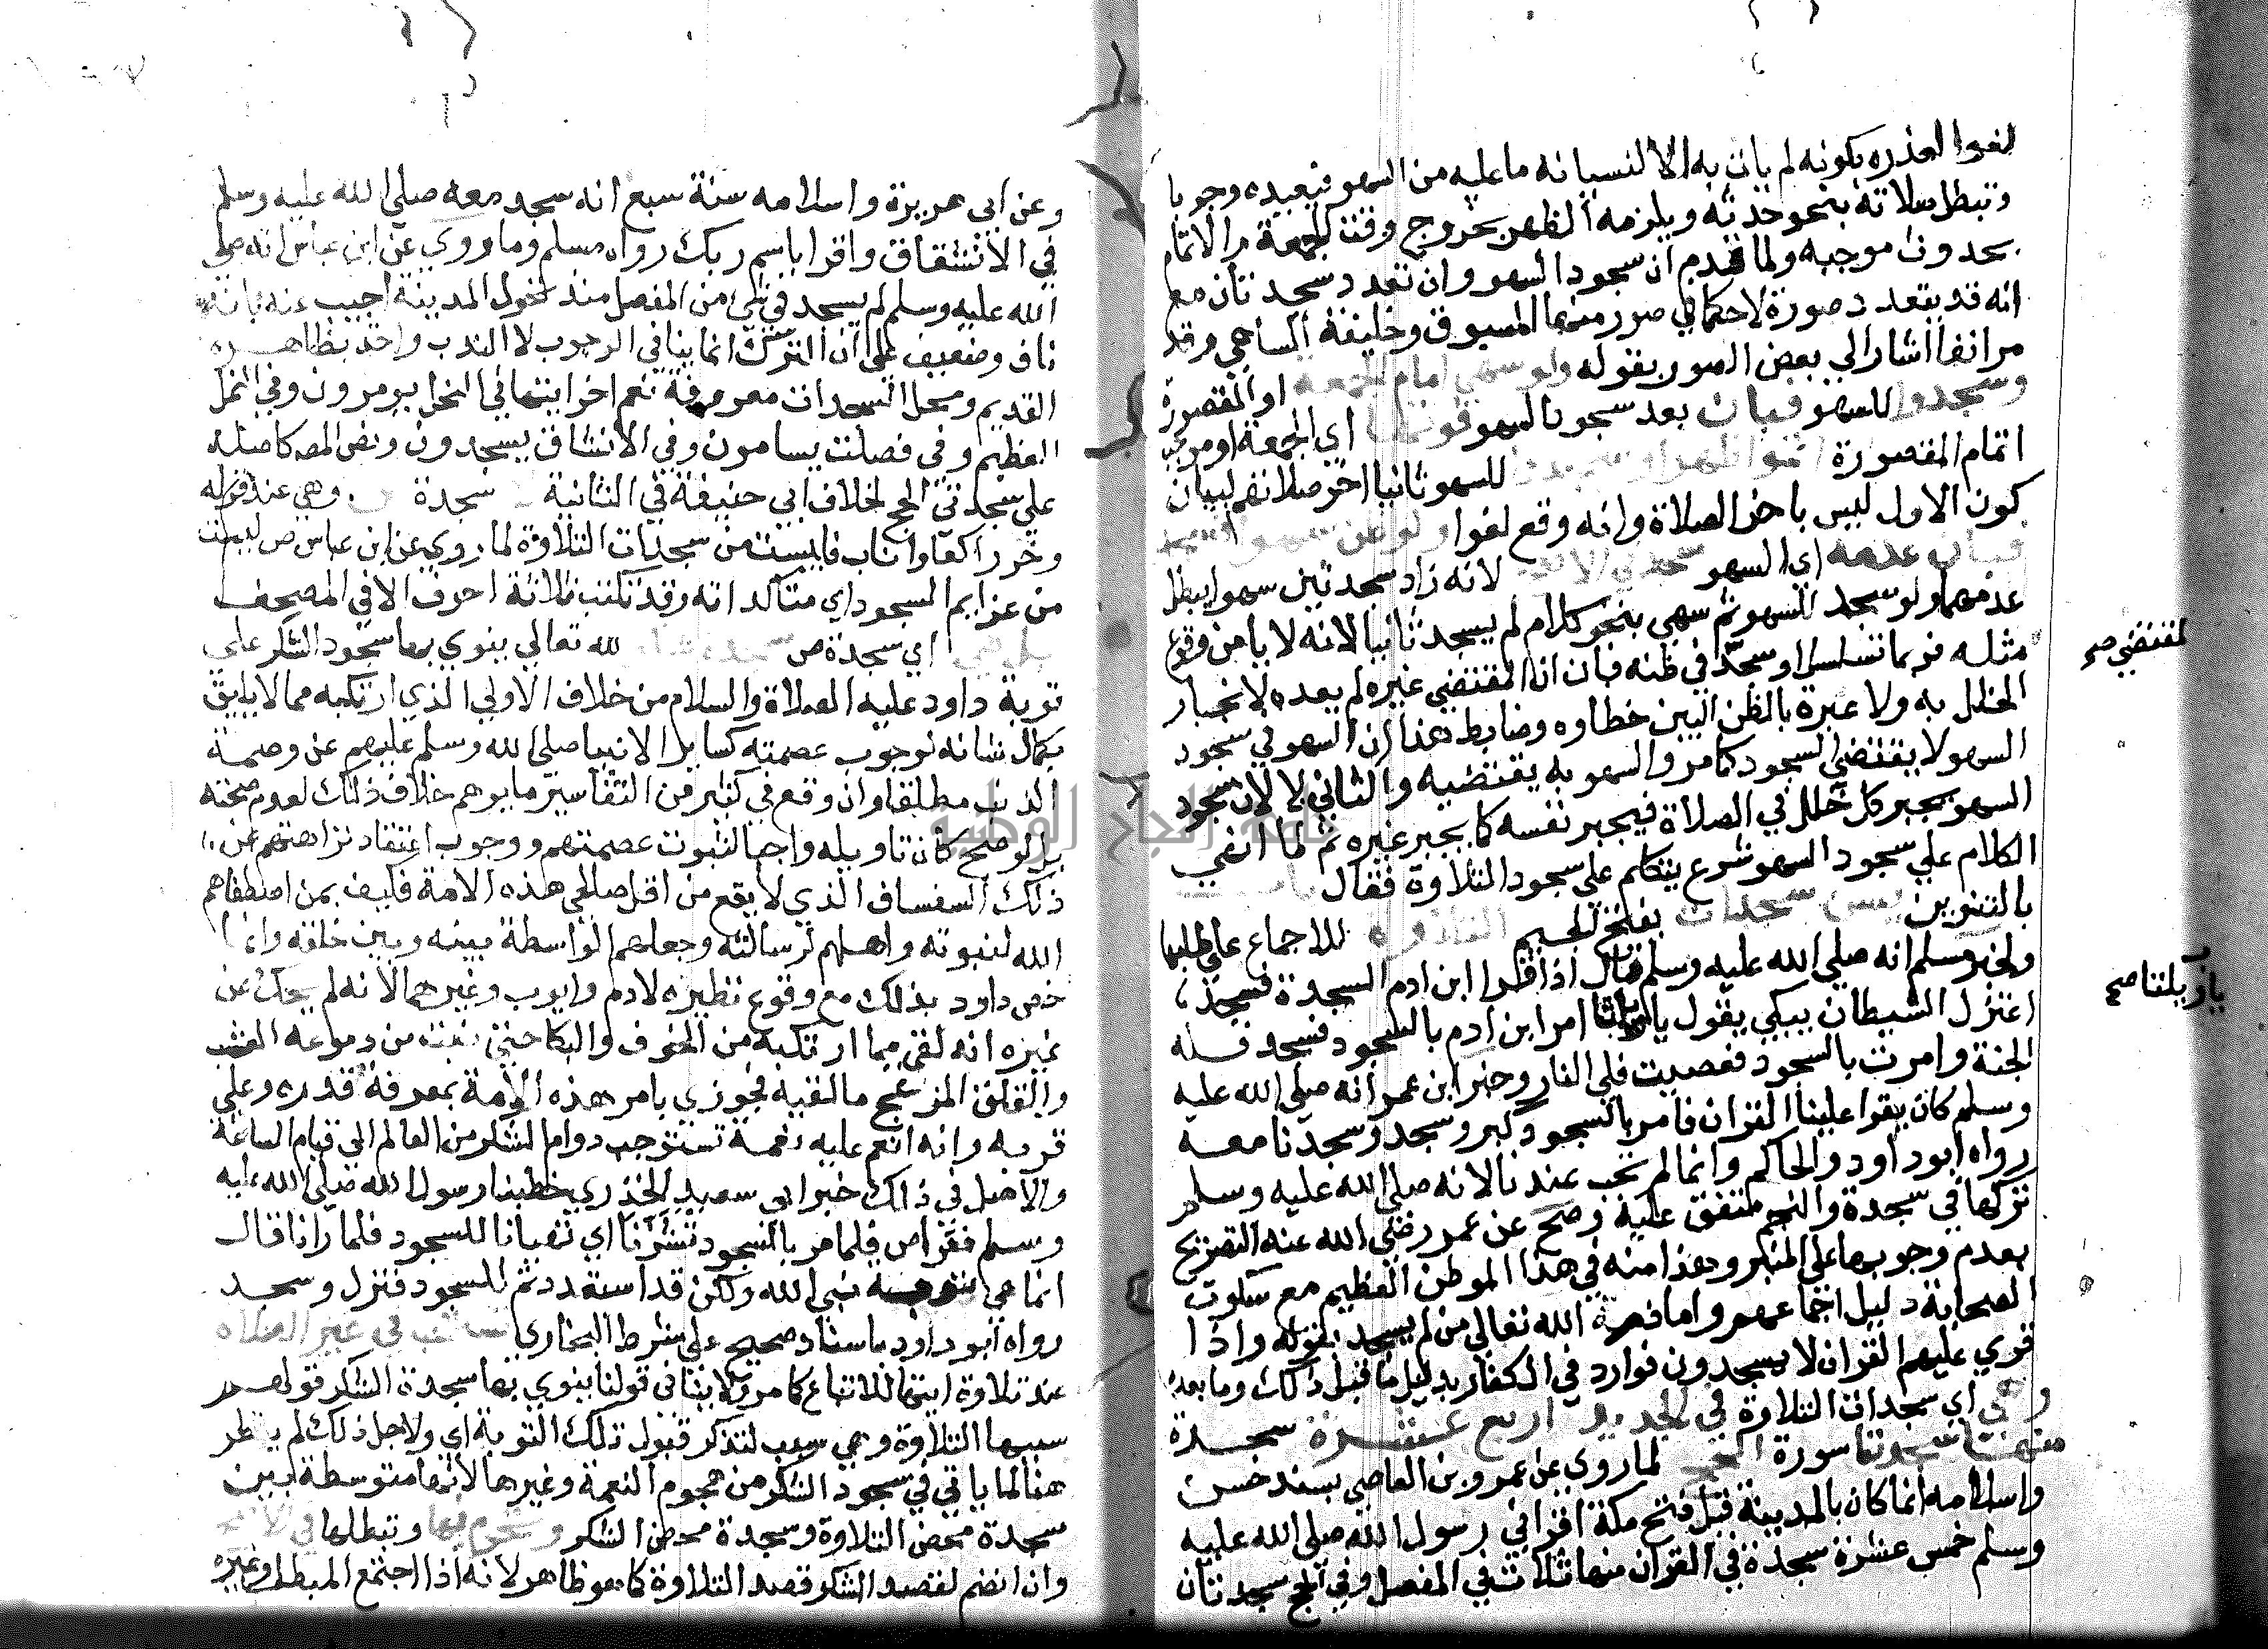 لغوا لعذره بكونه لم يات به الا لنسيانه ما عليه من السهو فيعيده وجوبا
وتبطل صلاته بنحو حدثه ويلزمه الظهر بخروج وقت الجمعة والاتمام
بحدوث موجبه ولما قدم ان سجود السهو وان تعدد سجدتان مع
انه قد يتعدد صورة لا حكما في صور منها المسبوق وخليفة الساهي وقد
مر انفا اشار الي بعض الصور بقوله ولو سهى امام الجمعة او المقصورة
وسجدوا للسهو فبان بعد سجود السهو فوتها اي الجمعة او موجب
اتمام المقصورة اتموا ظهرا وسجدوا للسهو ثانيا اخر صلاتهم لبيان
كون الاول ليس باخر الصلاة وانه وقع لغوا ولو ظن سهوا فسجد
فبان عدمه اي السهو سجد في الاصح لانه زاد سجدتين سهوا يبطل
عمدهما ولو سجد للسهو ثم سهى بنحو كلام لم يسجد ثانيا لانه لا يامن وقوع
مثله فربما تسلسل او سجد في ظنه فبان ان المقتضي غيره لم يعده لانجبار
الخلل به ولا عبرة بالظن البين خطاوه وضابط هذا ان السهو في سجود
السهو لا يقتضي السجود كما مر والسهو به يقتضيه والثاني لا لان سجود
السهو يجبر كل خلل في الصلاة فيجبر نفسه كما يجبر غيره ثم لما انهي
الكلام علي سجود السهو شرع يتكلم علي سجود التلاوة فقال باب
بالتنوين يسن سجدات بفتح الجيم التلاوة للاجماع علي طلبها
ولخبر مسلم انه صلي الله عليه وسلم قال اذا قرا ابن ادم السجدة فسجد
اعتزل الشيطان يبكي يقول يا ويلتا امر ابن ادم بالسجود فسجد فله
الجنة وامرت بالسجود فعصيت فلي النار وخبر ابن عمر انه صلي الله عليه
وسلم كان يقرا علينا القران فاذا مر بالسجود كبر وسجد وسجدنا معه
رواه ابو داود والحاكم وانما لم تجب عندنا لانه صلي الله عليه وسلم
تركها في سجدة والنجم متفق عليه وصح عن عمر رضي الله عنه التصريح
بعدم وجوبها علي المنبر وهذا منه في هذا الموطن العظيم مع سكوت
الصحابة دليل اجماعهم واما ذمه الله تعالي من لم يسجد بقوله واذا
قري عليهم القران لا يسجدون فوارد في الكفار بدليل ما قبل ذلك وما بعده
وهي اي سجدات التلاوة في الجديد اربع عشرة سجدة
منها سجدتا سورة الحج لما روي عن عمرو بن العاصي بسند حسن
واسلامه انما كان بالمدينة قبل فتح مكة اقراني رسول الله صلي الله عليه
وسلم خمس عشرة سجدة في القران منها ثلاث في المفصل وفي الحج سجدتان
لمقتضي صح
يا ويلتا صح
وعن ابي هريرة واسلامه سنة سبع انه سجد معه صلي الله عليه وسلم
في الانشقاق واقرا باسم ربك رواه مسلم وما روي عن ابن عباس انه صلي
الله عليه وسلم لم يسجد في شئ من المفصل منذ تحول المدينة اجيب عنه بانه
ناف وضعيف علي ان الترك انما ينافي الوجوب لا الندب واخذ بظاهره
القديم ومحل السجدات معروفة نعم اخر ايتها في النحل يومرون وفي النمل
العظيم وفي فصلت يسامون وفي الانشقاق يسجدون ونص المص كاصله
علي سجدتي الحج لخلاف ابي حنيفة في الثانية سجدة ص وهي عند قوله
وخر راكعا واناب فليست من سجدات التلاوة لما روي عن ابن عباس ص ليست
من عزايم السجود اي متاكداته وقد تكتب ثلاثة احرف الا في المصحف
بل هي اي سجدة ص سجدة شكر لله تعالي ينوي بها سجود الشكر علي
توبة داود عليه الصلاة والسلام من خلاف الاولي الذي ارتكبه مما لا يليق
بكمال شانه لوجوب عصمته كساير الانبيا صلي الله وسلم عليهم عن وصمة
الذنب مطلقا وان وقع في كثير من التفاسير ما يوهم خلاف ذلك لعدم صحته
بل لو صح كان تاويله واجبا لثبوت عصمتهم ووجوب اعتقاد نزاهتهم عن
ذلك السفساف الذي لا يقع من اقل صالحي هذه الامة فكيف بمن اصطفاهم
الله لنبوته واهلهم لرسالته وجعلهم الواسطة بينه وبين خلقه وانما
خص داود بذلك مع وقوع نظيره لادم وايوب وغيرهما لانه لم يحك عن
غيره انه لقي مما ارتكبه من الخوف والبكا حتي نبت من دموعه العشب
والقلق المزعج ما لقيه فجوزي بامر هذه الامة بمعرفة قدره وعلي
قربه وانه انعم عليه نعمة تستوجب دوام الشكر من العالم الي قيام الساعة
والاصل في ذلك خبر ابي سعيد الخدري خطبنا رسول الله صلي الله عليه
وسلم فقرا ص فلما مر بالسجود تشزنا اي تهيانا للسجود فلما رانا قال
انما هي توبة نبي الله ولكن قد استعددتم للسجود فنزل وسجد
رواه ابو داود باسناد صحيح علي شرط البخاري تستحب في غير الصلاة
عند تلاوة ايتها للاتباع كما مر ولا ينافي قولنا ينوي بها سجدة الشكر قولهم
سببها التلاوة وهي سبب لتذكر قبول تلك التوبة اي ولاجل ذلك لم ينظر
هنا لما ياتي في سجود الشكر من هجوم النعمة وغيرها لانها متوسطة بين
سجدة محض التلاوة وسجدة محض الشكر وتحرم بها وتبطلها في الاصح
وان انضم لقصد الشكر قصد التلاوة كما هو ظاهر لانه اذا اجتمع المبطل وغيره